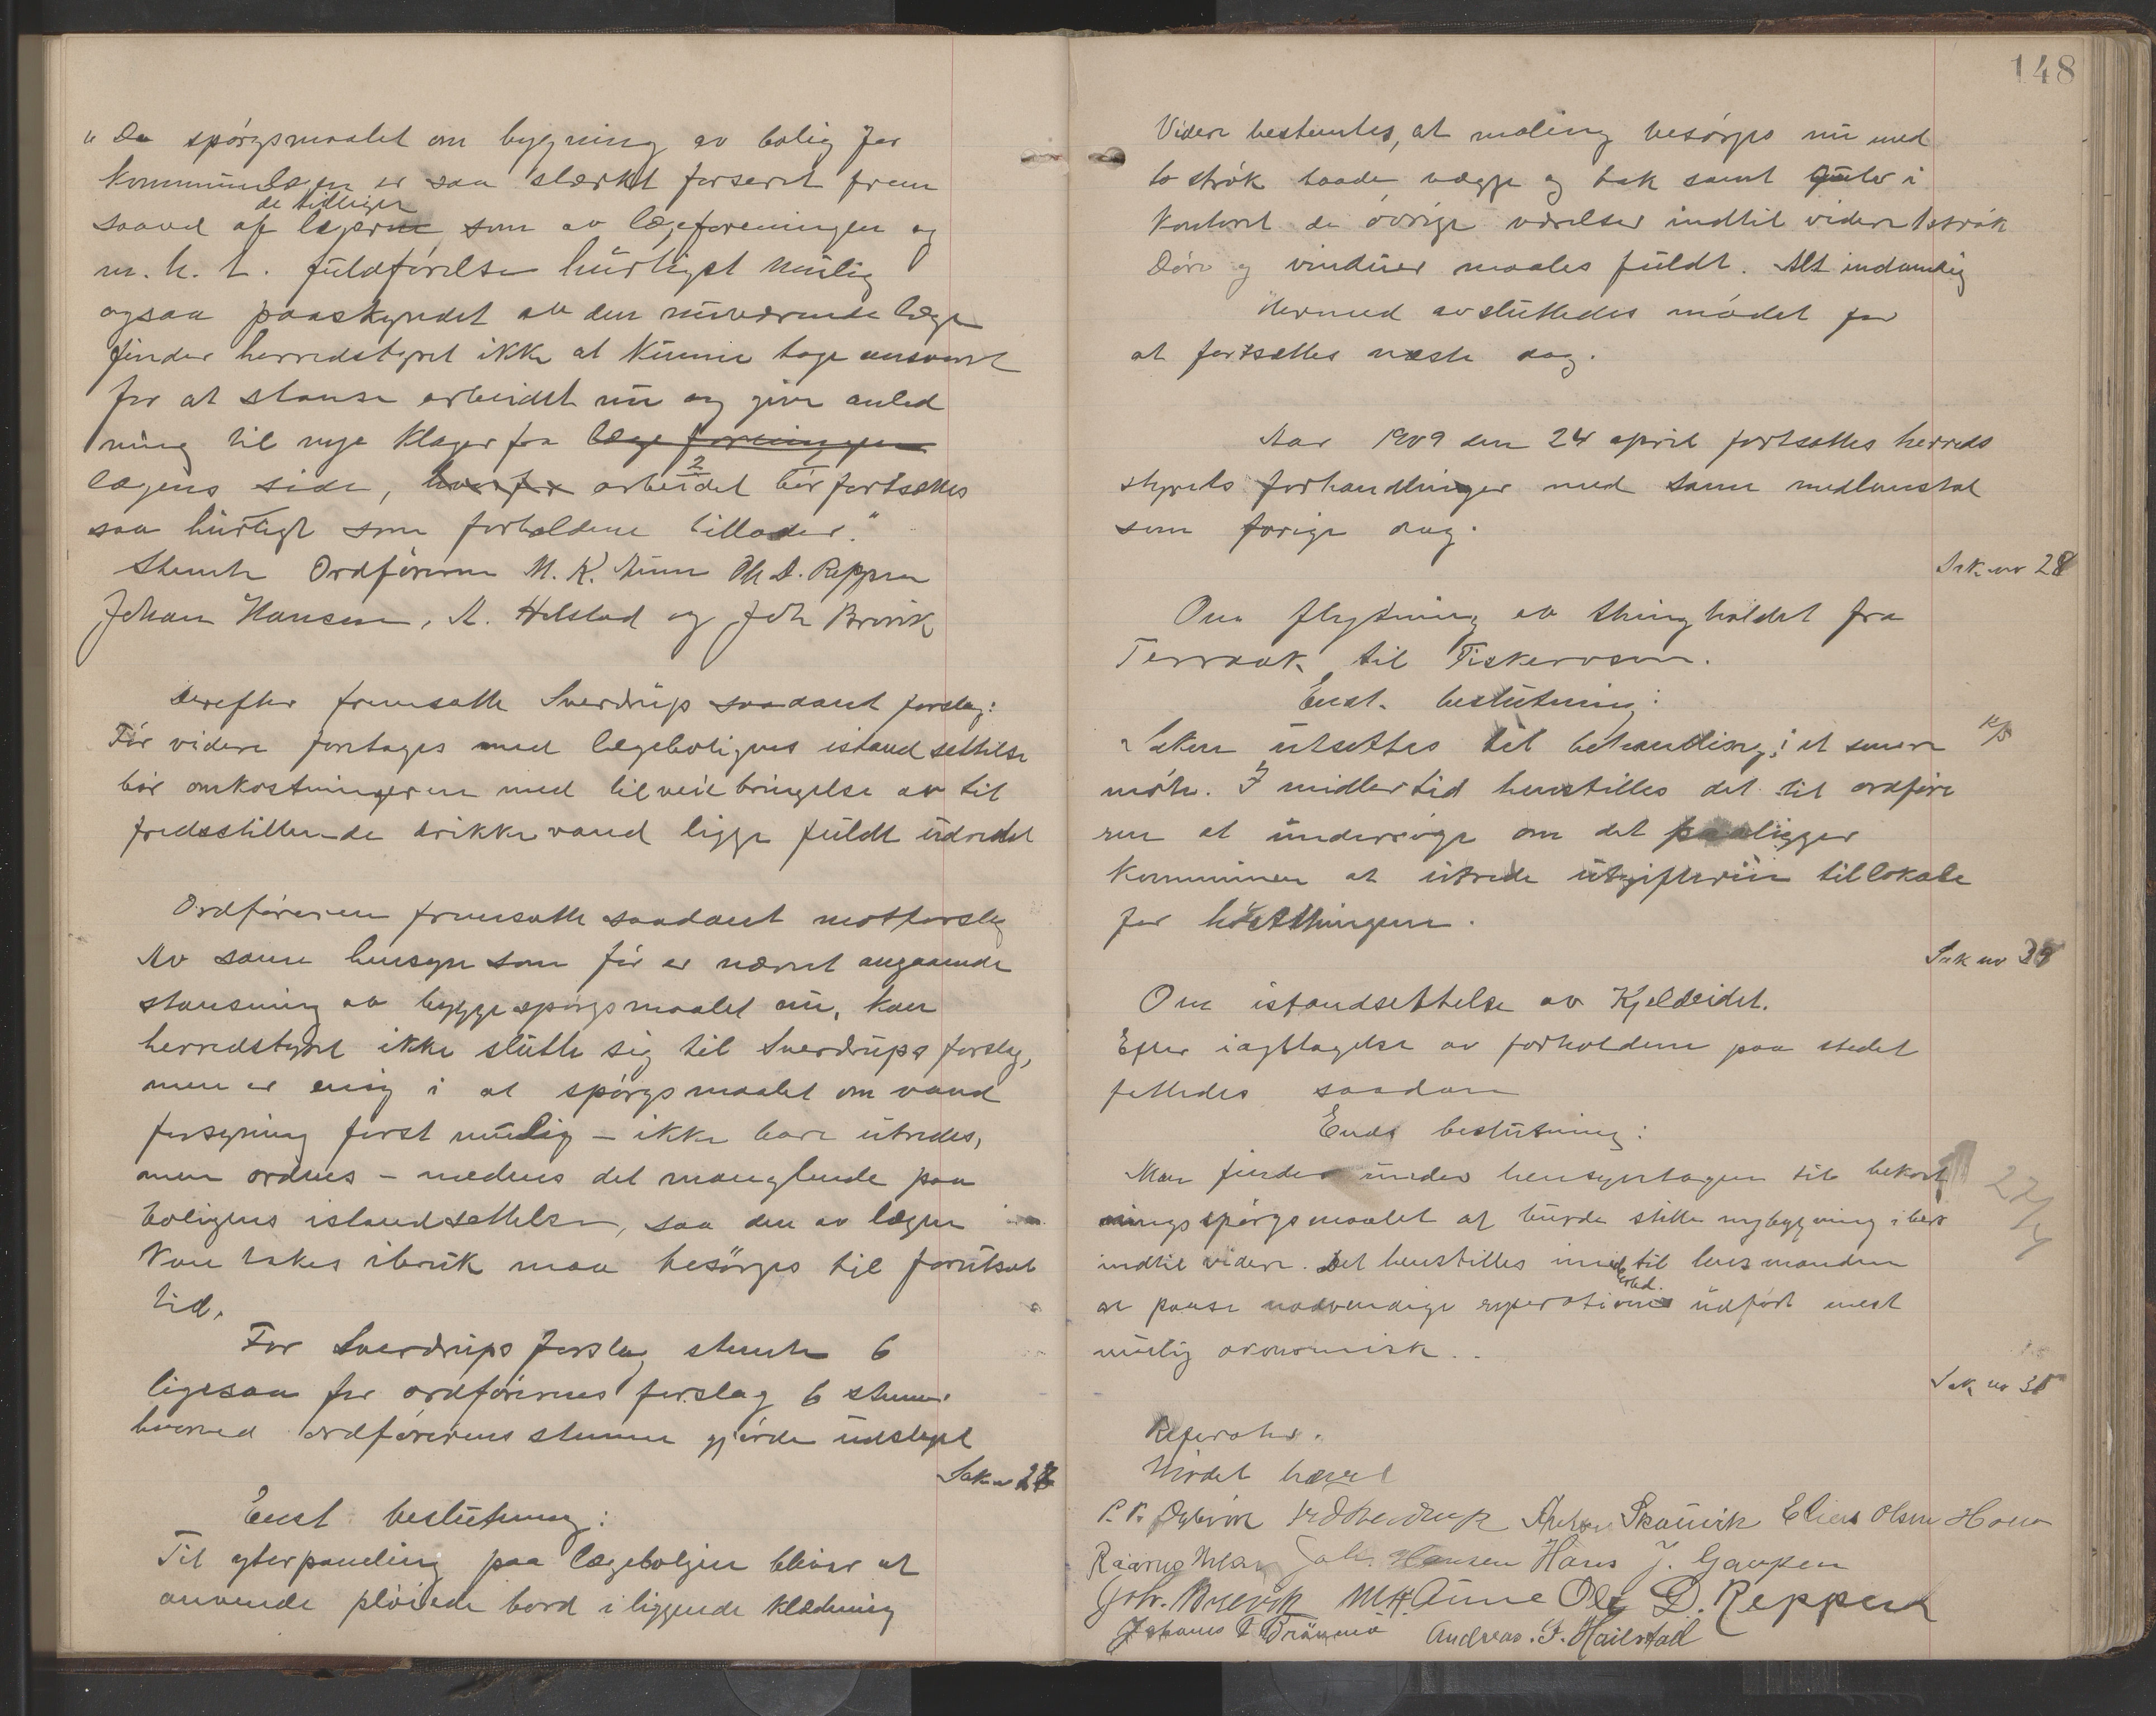 "Da spørgsmaalet om bygning av bolig for
kommunelægen er saa stærkt forseret frem
de tidligere
saavel af lægerne, som av lægeforeningen og
m. h. t. fuldførelse hurtigst mulig
ogsaa paaskyndet av den nuværende læge
finder herredstyret ikke at kunne tage ansvaret
for at stanse arbeidet nu og give anled
ning til nye klager fra lægeforeningen
lægens side, hvorfor arbeidet bør fortsættes
saa hurtigt som forholdene tillader."
Stemte Ordføreren M. K. Aune Ole D. Reppen
Johan Hansen, A. Helstad og Joh Brevik
Derefter fremsatte Sverdrup saadant forslag:
Før videre foretages med lægeboligens istandsettelse
bør omkostningerne med tilveiebringelse av til
fredsstillende drikkevand ligge fuldt udredet
Ordføreren fremsatte saadant motforslag
Av samme hensyn som før er nævnt angaaende
stansning av byggespørgsmaalet nu, kan
herredstyret ikke slutte sig til Sverdrups forslag,
men er enig i at spørgsmaalet om vand
forsyning først mulig – ikke bare utredes,
men ordnes – medens det manglende paa
boligens istandsettelse, saa den av lægen
kan takes ibruk maa besørges til forutsat
tid.
For Sverdrups forslag stemte 6
ligesaa for ordførerens forslag 6 stemmer
hvorved ordførerens stemme gjørde udslaget
Sak nr 27
Enst. beslutning:
Til yterpaneling paa lægeboligen bliver at
anvende pløiede bord i liggende klædning
148
Videre bestemtes, at maling besørges nu med
to strøk baade vægge og tak samt gulv i
kontoret de øvrige værelser indtil videre 1 strøk
Døre og vinduer maales fuldt. Alt indvendig
Hermed avsluttedes mødet for
at fortsættes næste dag.
Aar 1909 den 24 april fortsattes herreds
styrets forhandlinger med samme medlemstal
som forrige dag.
Sak nr 28
Om flytning av thingholdet fra
Terraak til Fiskerosen.
Enst. beslutning:
"Saken utsettes til behandling i et senere
møte. Imidlertid henstilles det til ordføre
ren at undersøge om det paaligger
kommunen at utrede utgifterne til lokale
for høstthingene.
Sak nr 29
Om istandsettelse av Kjeldeidet.
Efter iagttagelse av forholdene paa stedet
fattedes saadan
Enst beslutning:
Man finder under hensyntagen til bekost
ningsspørgsmaalet at burde stille nybygning i bero
indtil videre. Det henstilles imidlertid til lensmanden
at paase nødvendige reperationer udført mest
mulig økonomisk.
22/4
Sak nr 30
Referater.
Mødet hævet
Anton Skauvik Elias Olsen Horn
Joh. Hansen Hans J. Gaupen
Joh. Brevik M K Aune Ole D. Reppen
Andreas. J. Heilstad